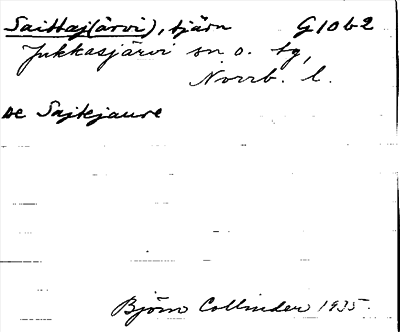 Saittaj(ärvi), tjärn G10b2
Jukkasjärvi sn o. tg,
Norrb. l.
se Sajkjaure
Björn Collinder 1935.